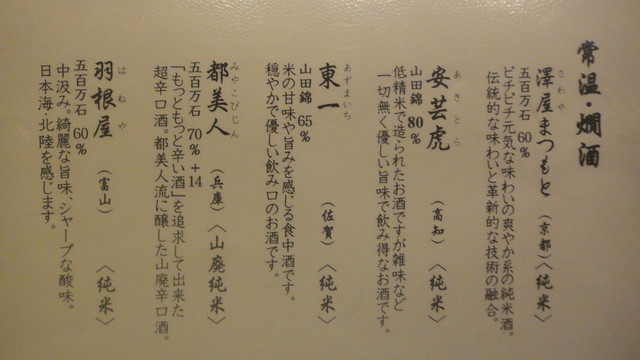 常温・燗酒
さわや
澤屋まつもと（京都）〈純米〉
五百万石 60%
ピチピチ元気な味わいの爽やか系の純米酒。
伝統的な味わいと革新的な技術の融合。
あきとら
安芸虎（高知）〈純米〉
山田錦 80%
低精米で造られたお酒ですが雑味など
一切無く優しい旨味で飲み得なお酒です。
あずまいち
東一（佐賀）〈純米〉
山田錦 65%
米の甘味や旨みを感じる食中酒です。
穏やかで優しい飲み口のお酒です。
みやこびじん
都美人（兵庫）〈山廃純米〉
五百万石 70% +14
「もっともっと辛い酒」を追求して出来た
超辛口酒。都美人流に醸した山廃辛口酒。
はねや
羽根屋（富山）〈純米〉
五百万石 60%
中汲み。綺麗な旨味、シャープな酸味。
日本海・北陸を感じます。